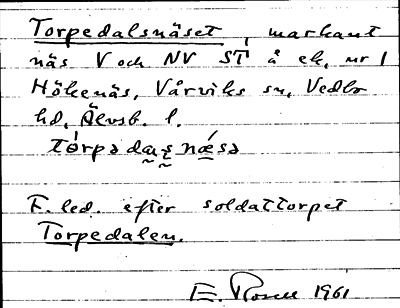 Torpedalsnäset, markant
näs V och NV ST å ek. nr 1
Hökenäs, Vårviks sn, Vedbo
hd, Älvsb. l.
F. led. efter soldattorpet
Torpedalen.
E. Rosell 1961